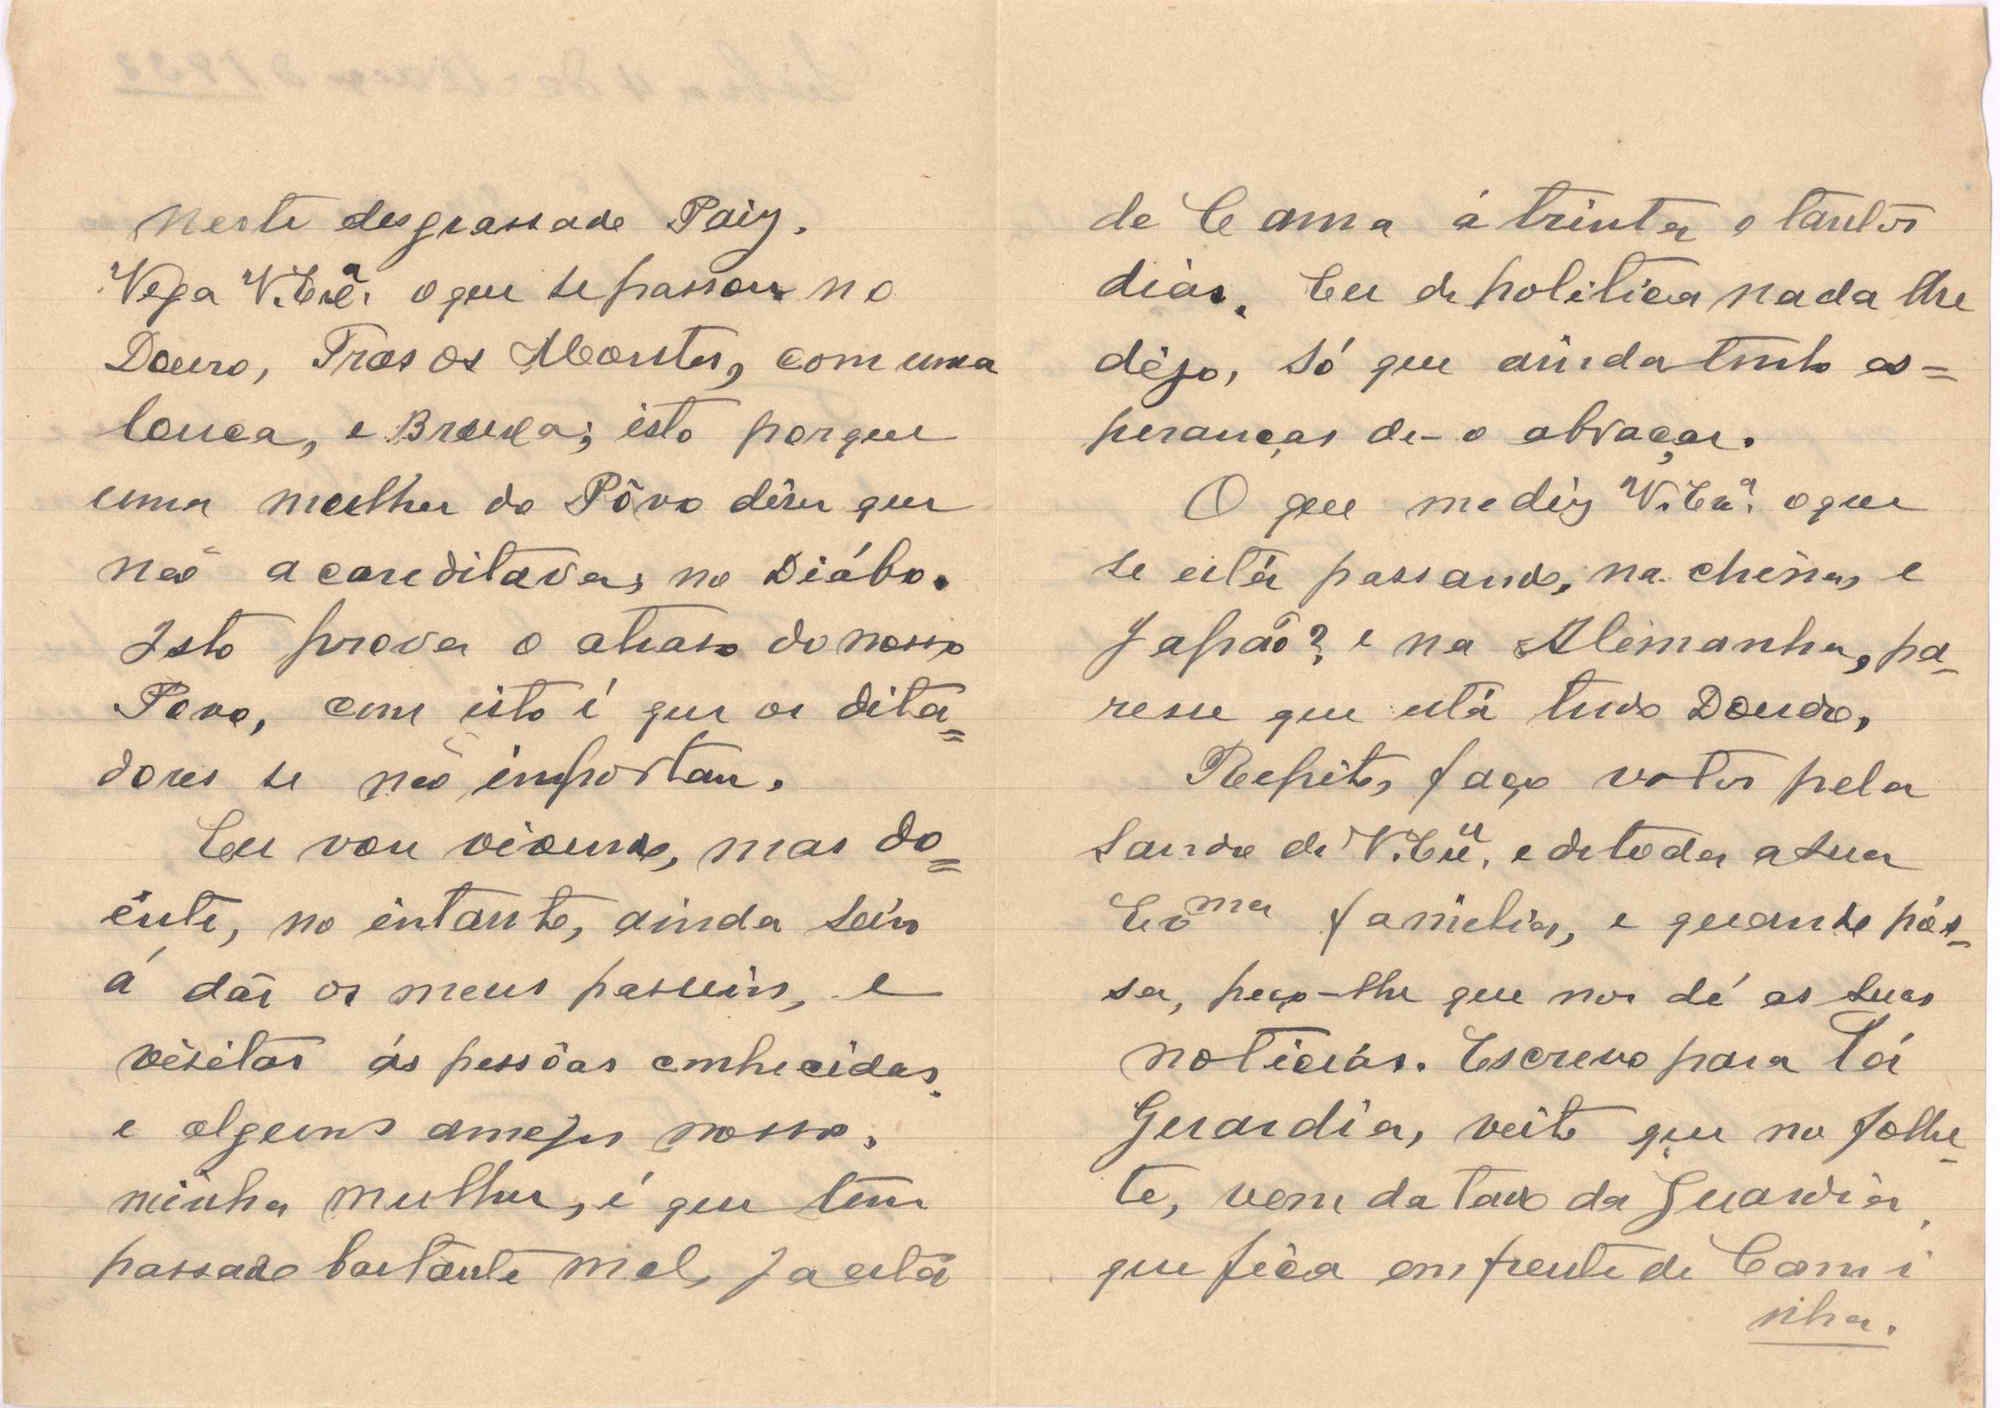 neste desgrassado Paiz.
Veja V. Exª. o que se passou no
Douro, Tras os Montes, com uma
louca, e Bruxa; isto porque
uma mulher do Pôvo disse que
não acareditava, no Diábo.
Isto prova o atraso do nosso
Povo, com isto é que os dita=
dores se não importan.
Eu vou vivendo, mas do=
ente, no intanto, ainda
á dár os meus passeios, e
vesitas ás pessôas conhecidas,
e alguns amejos nossos,
minha mulher, é que tem
passado bastante mal, Ja está
de Cama á trinta e tantos
dias. Eu de politica nada lhe
dêjo, só que ainda tenho es=
peranças de-o abraçar.
O que me diz V. Exª. o que
se está passando, na china, e
Japão? e na Alemanha, pa-
resse que está tudo Doudo,
Repito, faço votos pela
Saude de V. Exª. e de toda a sua
Exma familia, e quando pós-
sa, peço-lhe que nos dê as suas
noticias. Escrevo para Lá
Guardia, visto que no folhe-
te, vem datado da Guardia,
que fica em frente de Cami
nha.